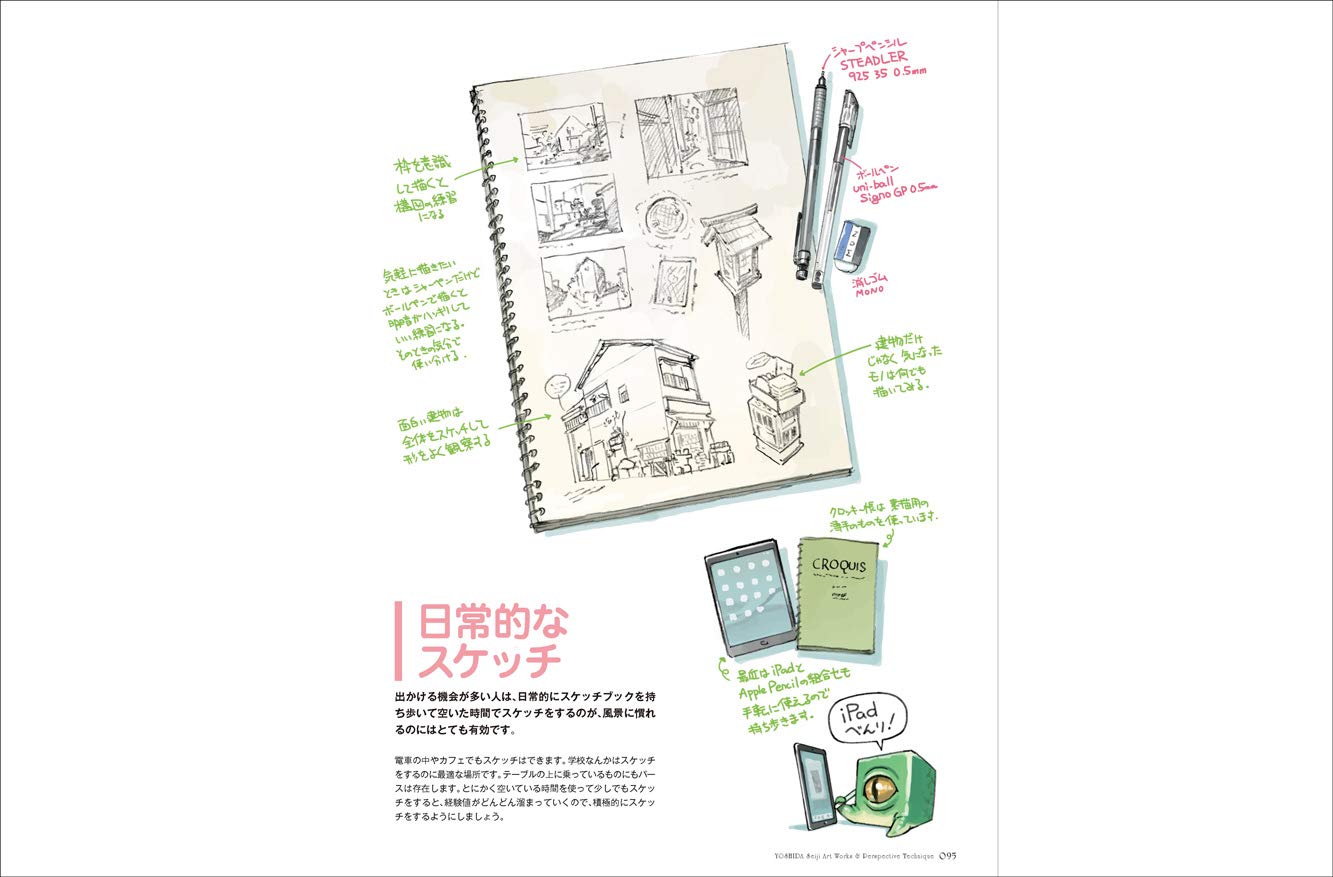 シャープペンシル
STEADLER
925 35 0.5mm
ボールペン
uni-ball
Signo GP 0.5mm
消しゴム
MONO
枠を意識
して描くと
構図の練習
になる
気軽に描きたい
ときはシャーペンだけど
ボールペンで描くと
明暗がハッキリして
いい練習になる。
そのときの気分で
使い分ける。
面白い建物は
全体をスケッチして
形をよく観察する
建物だけ
じゃなく気になった
モノは何でも
描いてみる。
クロッキー帳は素描用の
薄手のものを使っています。
CROQUIS
最近はiPadと
Apple Pencilの組合せも
手軽に使えるので
持ち歩きます。
iPad
べんり!
日常的な
スケッチ
出かける機会が多い人は、日常的にスケッチブックを持
ち歩いて空いた時間でスケッチをするのが、風景に慣れ
るのにはとても有効です。
電車の中やカフェでもスケッチはできます。学校なんかはスケッチ
をするのに最適な場所です。テーブルの上に乗っているものにもパー
スは存在します。とにかく空いている時間を使って少しでもスケッ
チをすると、経験値がどんどん溜まっていくので、積極的にスケッ
チをするようにしましょう。
YOSHIDA Seiji Art Works & Perspective Technique 095